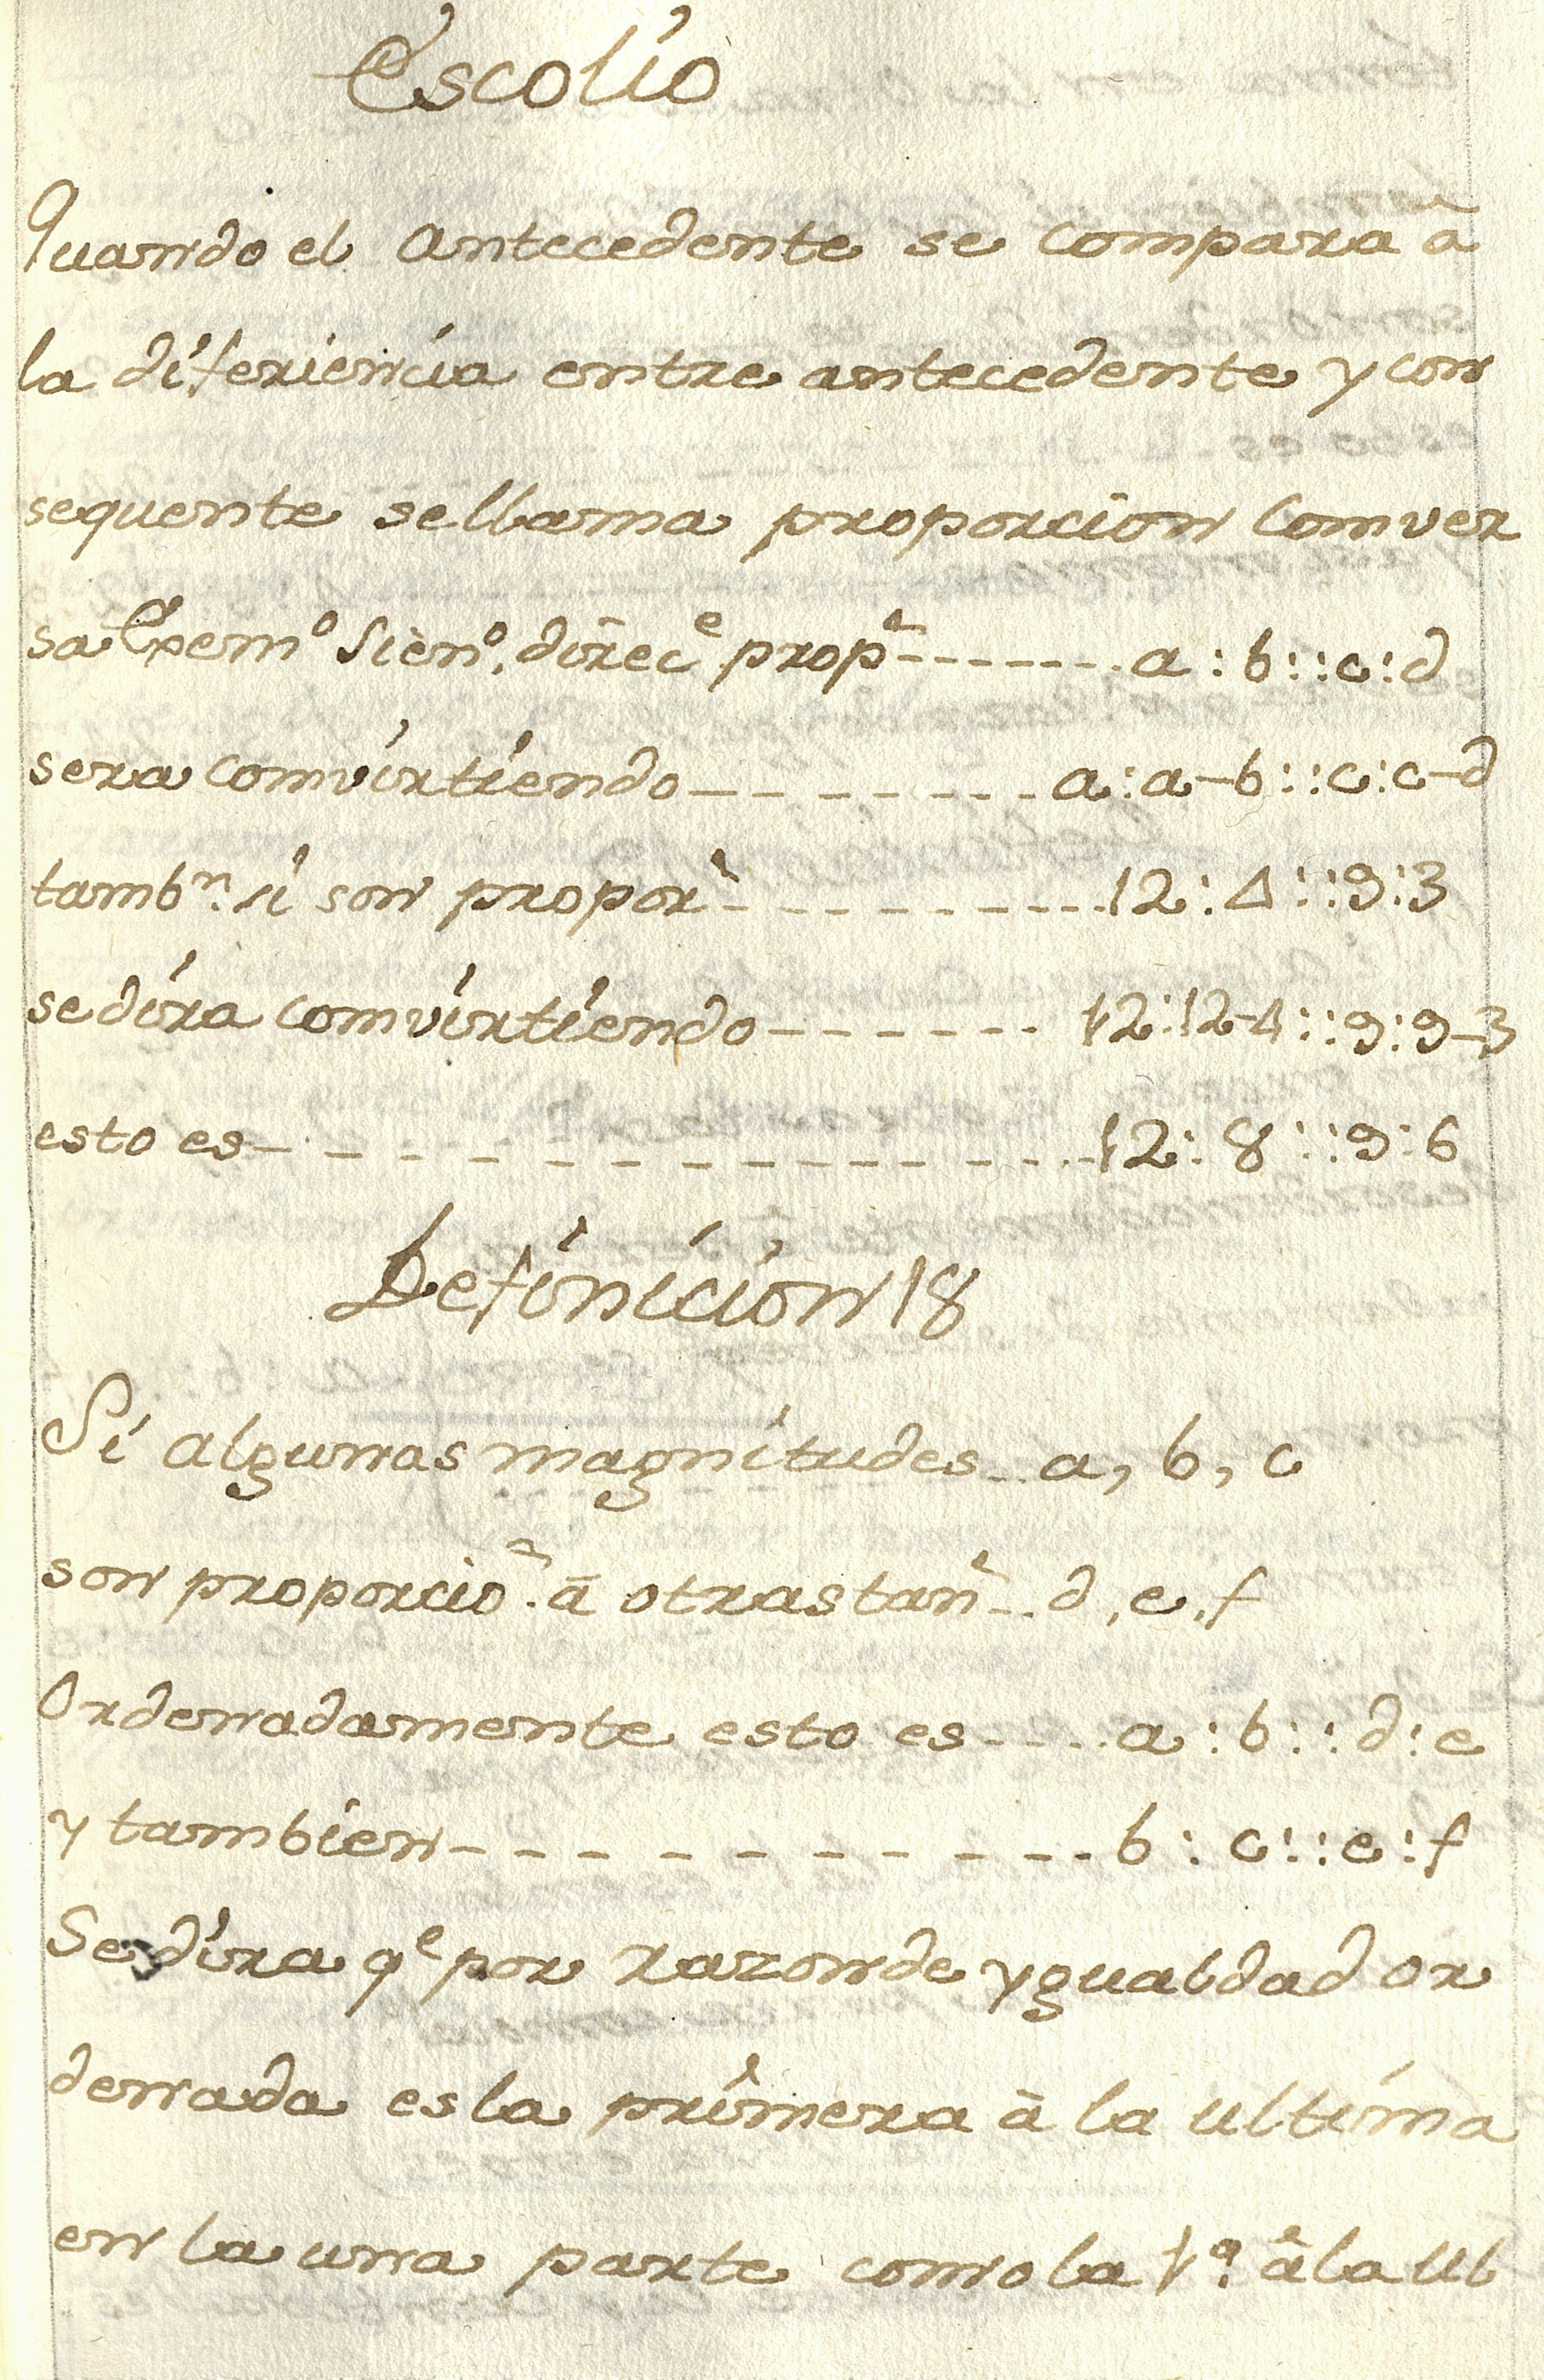 Escolio
Quando el antecedente se compara â
la diferiencia entre antecedente y con
sequente se llama proporcion comver
sa Exemº Sienº. direcᵉ propˢ -------- a : b :: c : d
sera comvirtiendo -------- a : a-b :: c : c-d
tambⁿ. si son proporˢ ---------- 12 : 4 :: 9 : 3
se dira comvirtiendo ------ 12 : 12-4 :: 9 : 9-3
esto es --------------- 12 : 8 :: 9 : 6
Definicion 18
Si algunas magnitudes -- a, b, c
son proporcioˢ. â otras tanˢ --- d, e, f
Ordenadamente esto es ---- a : b :: d : e
y tambien ----------- b : c :: e : f
Se dira qᵉ por razon de ygualdad or
denada es la primera â la ultima
en la una parte como la 1ª. â la ul